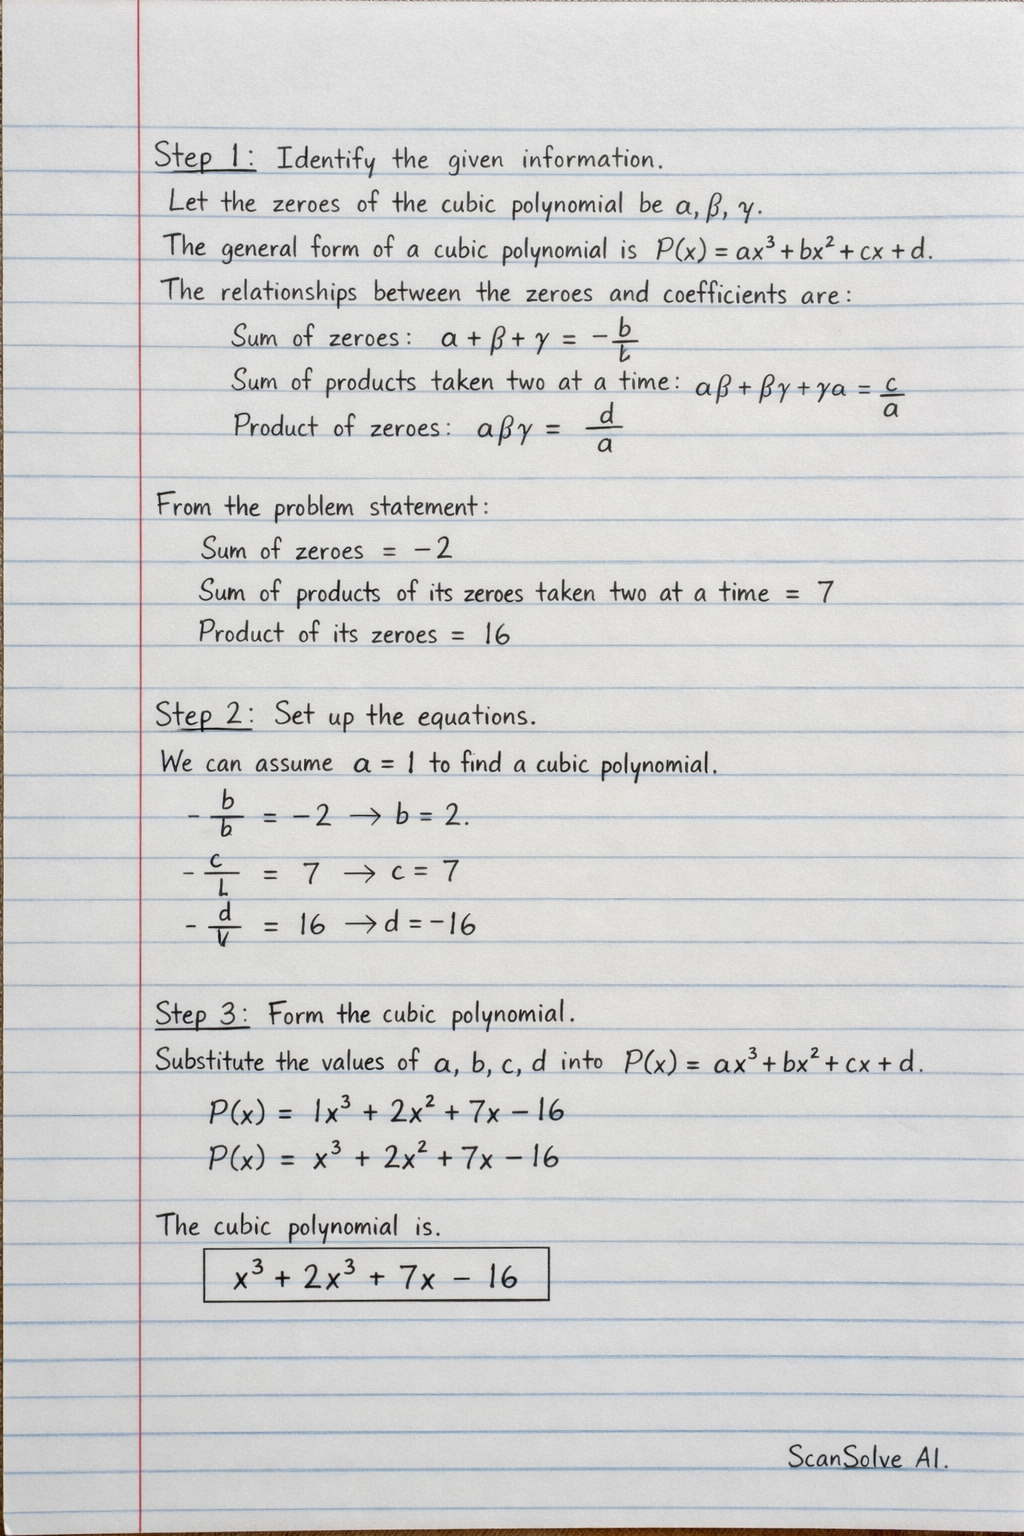 Step 1: Identify the given information.
Let the zeroes of the cubic polynomial be α, β, γ.
The general form of a cubic polynomial is P(x) = ax³ + bx² + cx + d.
The relationships between the zeroes and coefficients are:
Sum of zeroes: α + β + γ = -b/t
Sum of products taken two at a time: αβ + βγ + γα = c/a
Product of zeroes: αβγ = d/a
From the problem statement:
Sum of zeroes = -2
Sum of products of its zeroes taken two at a time = 7
Product of its zeroes = 16
Step 2: Set up the equations.
We can assume a = 1 to find a cubic polynomial.
-b/b = -2 → b = 2.
-c/L = 7 → c = 7
-d/V = 16 → d = -16
Step 3: Form the cubic polynomial.
Substitute the values of a, b, c, d into P(x) = ax³ + bx² + cx + d.
P(x) = 1x³ + 2x² + 7x - 16
P(x) = x³ + 2x² + 7x - 16
The cubic polynomial is.
x³ + 2x³ + 7x - 16
ScanSolve AI.